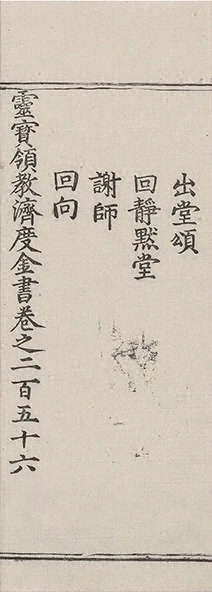 出堂頌
回靜默堂
謝師
回向
靈寶領教濟度金書卷之二百五十六